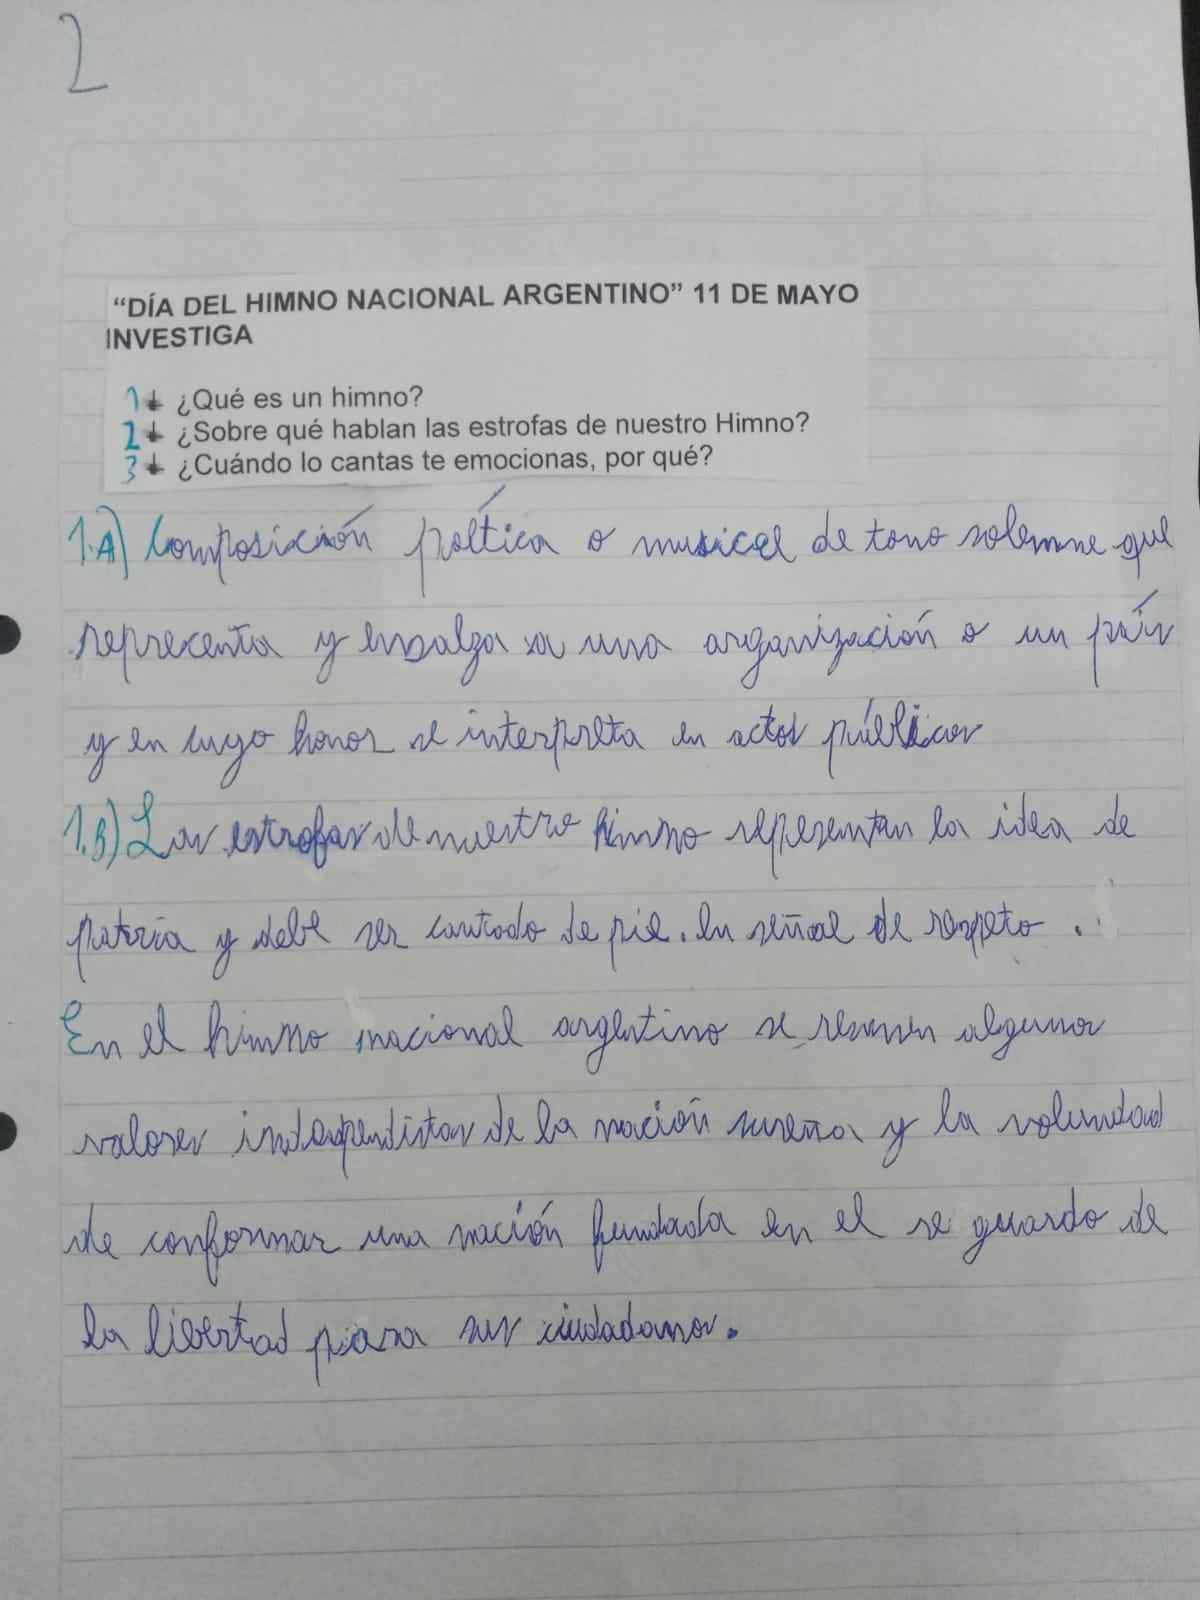 2
“DÍA DEL HIMNO NACIONAL ARGENTINO” 11 DE MAYO
INVESTIGA
1 ¿Qué es un himno?
2 ¿Sobre qué hablan las estrofas de nuestro Himno?
3 ¿Cuándo lo cantas te emocionas, por qué?
1.A) Composición poítica o musical de tono solemne que
reprecenta y ensalza a una organización o un país
y en cuyo honor se interpreta en actos públicos
1.B) Las estrofas de nuestro himno representan la idea de
patria y debe ser cantado de pie. En señal de respeto.
En el himno nacional argentino se resumen algunos
valores independistas de la nación sureña y la voluntad
de conformar una nación fundada en el se guardo de
la libertad para sus ciudadanos.